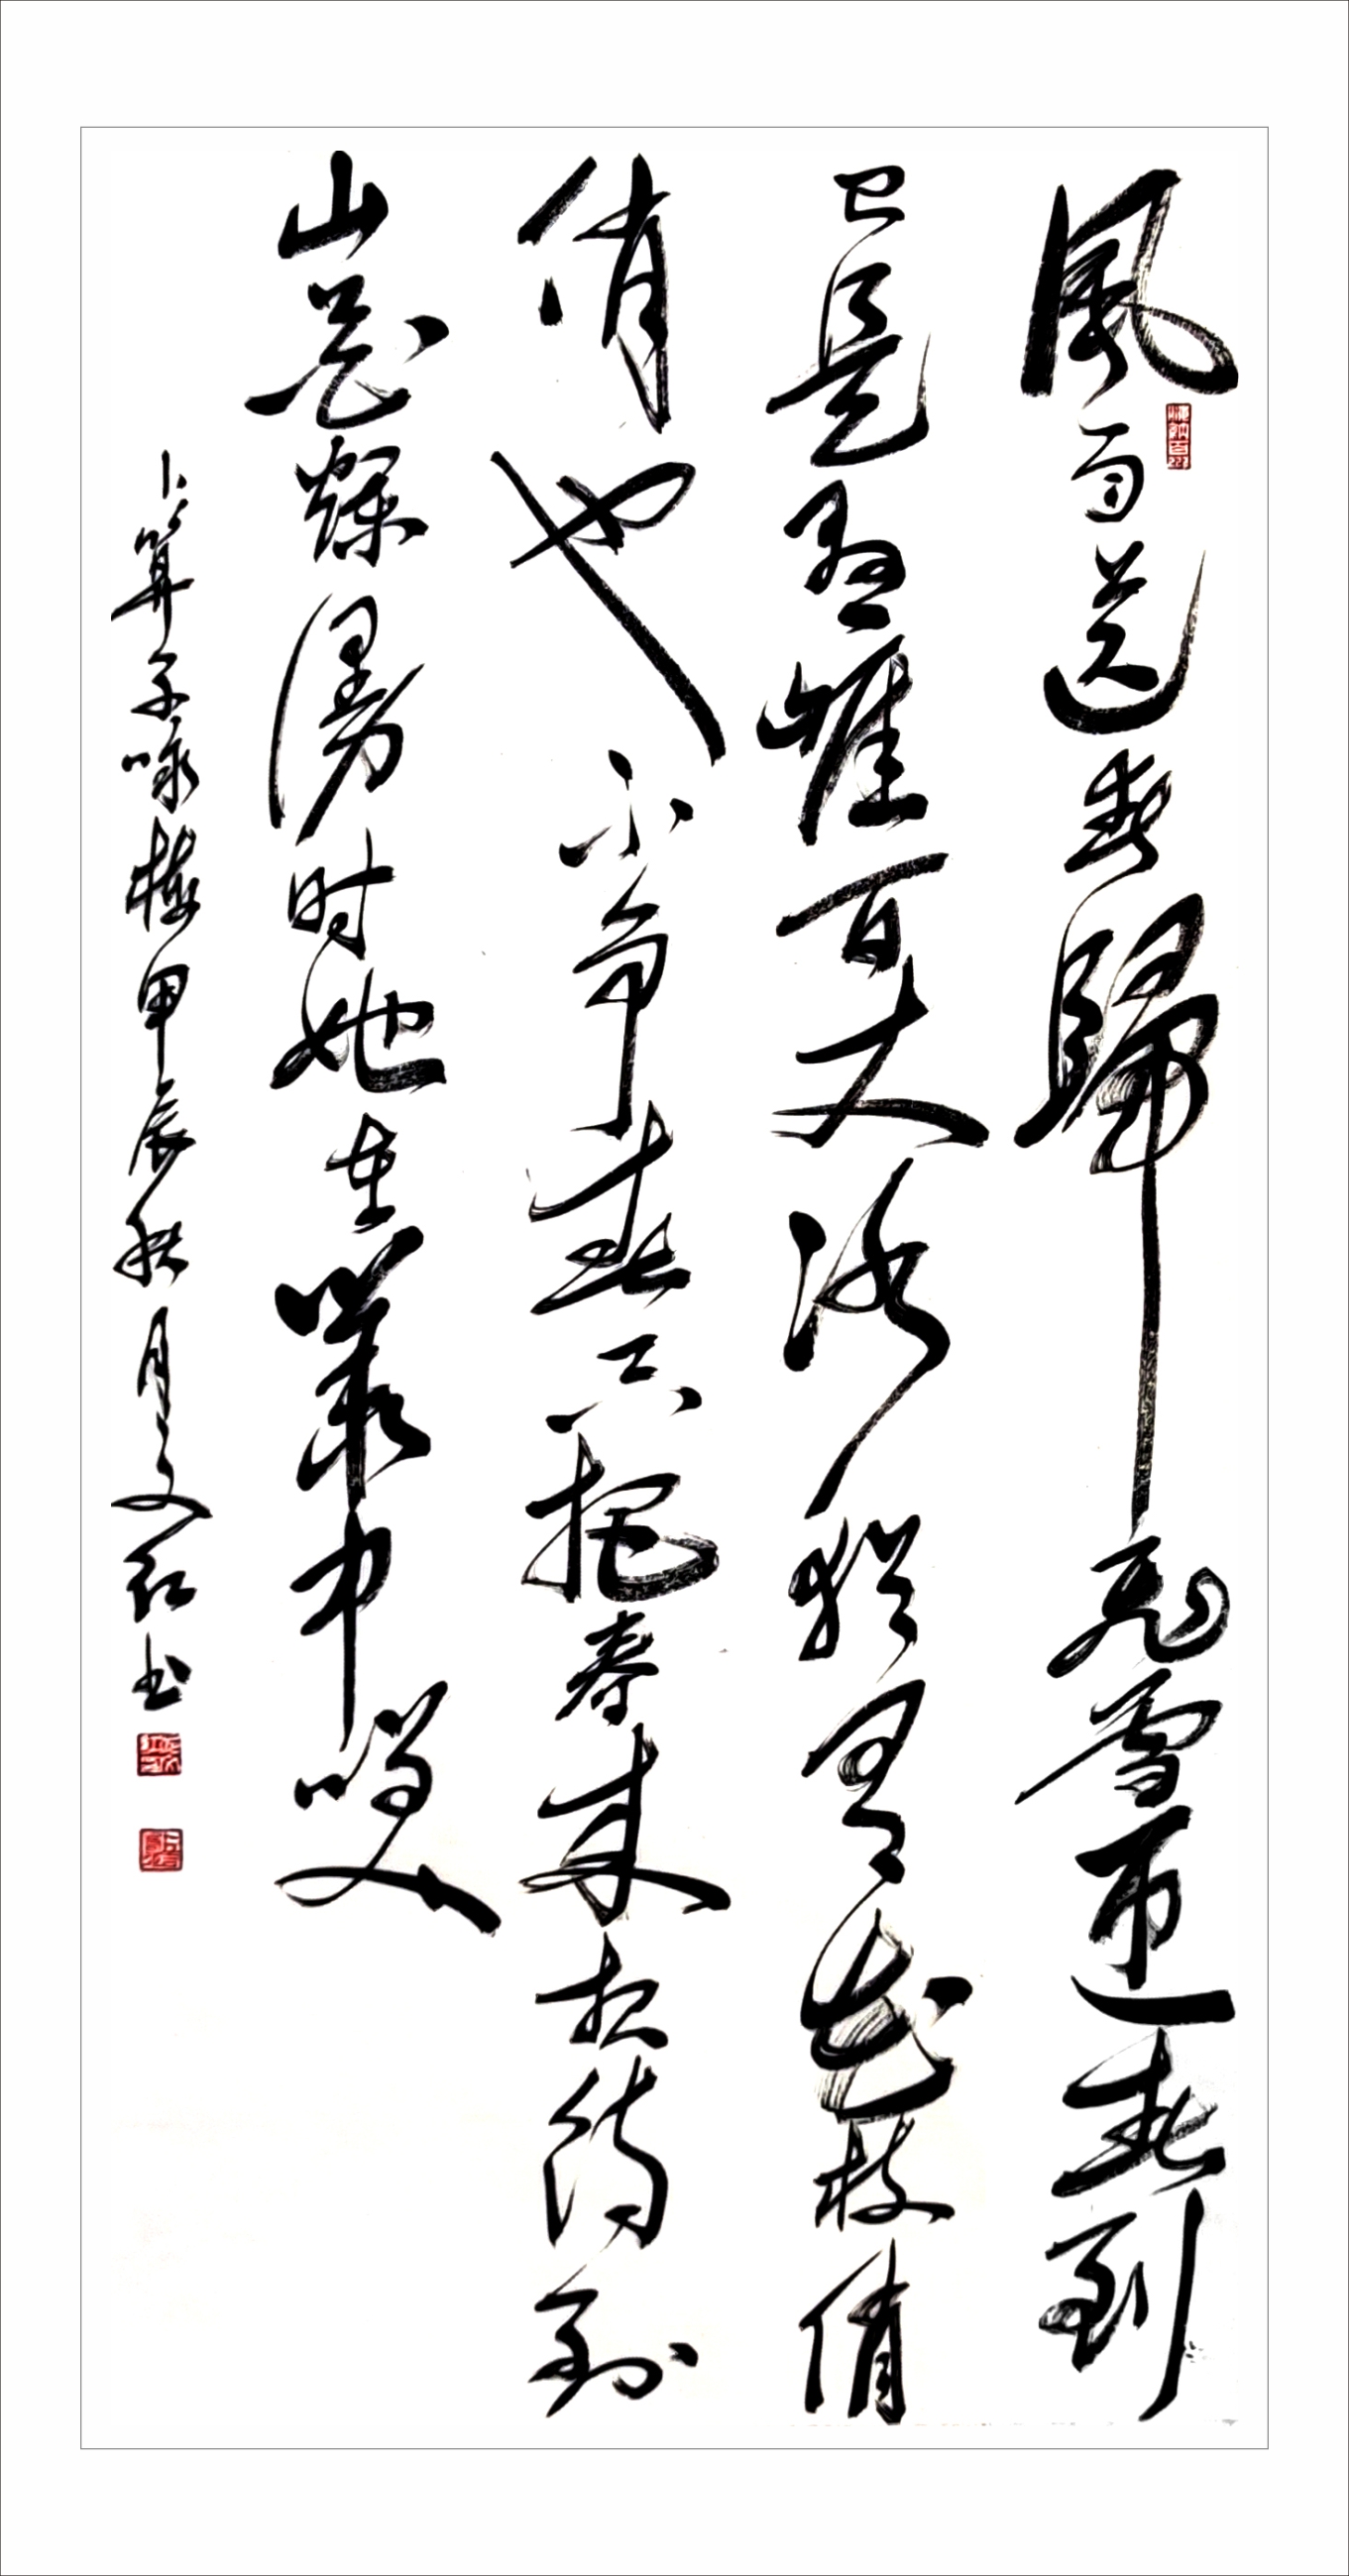 風雨送春歸飛雪迎春到
已是懸崖百丈冰猶有花枝俏
俏也不争春只把春來報待到
山花爛漫时她在叢中笑
卜算子咏梅甲辰秋月文红书